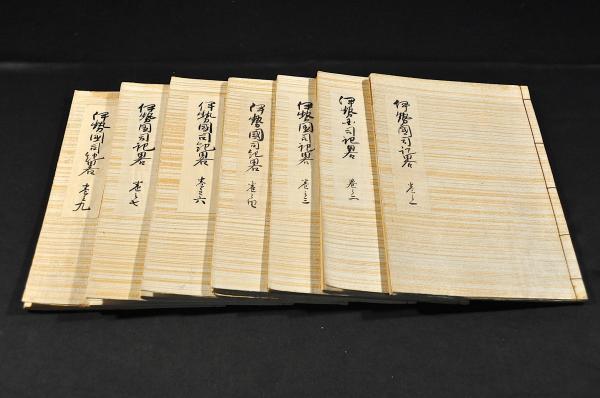 伊勢國司記畧 巻之一
伊勢國司記畧 巻之二
伊勢國司記畧 巻之三
伊勢國司記畧 巻之四
伊勢國司記畧 巻之六
伊勢國司記畧 巻之七
伊勢國司記畧 巻之九